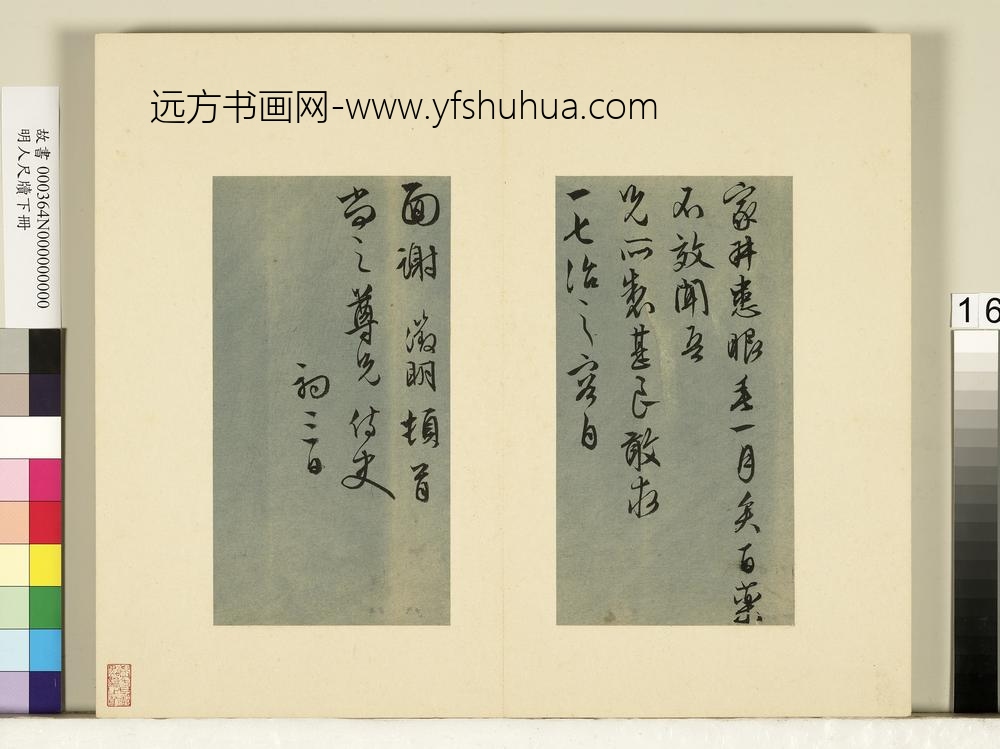 远方书画网-www.yfshuhua.com
故書 000364N000000000
明人尺牘下冊
家耕患眼五一月矣百藥
不效聞吾
兄所製甚良敢求
一七治之容日
面謝 徵明頓首
尚之尊兄 侍史
初三日
16